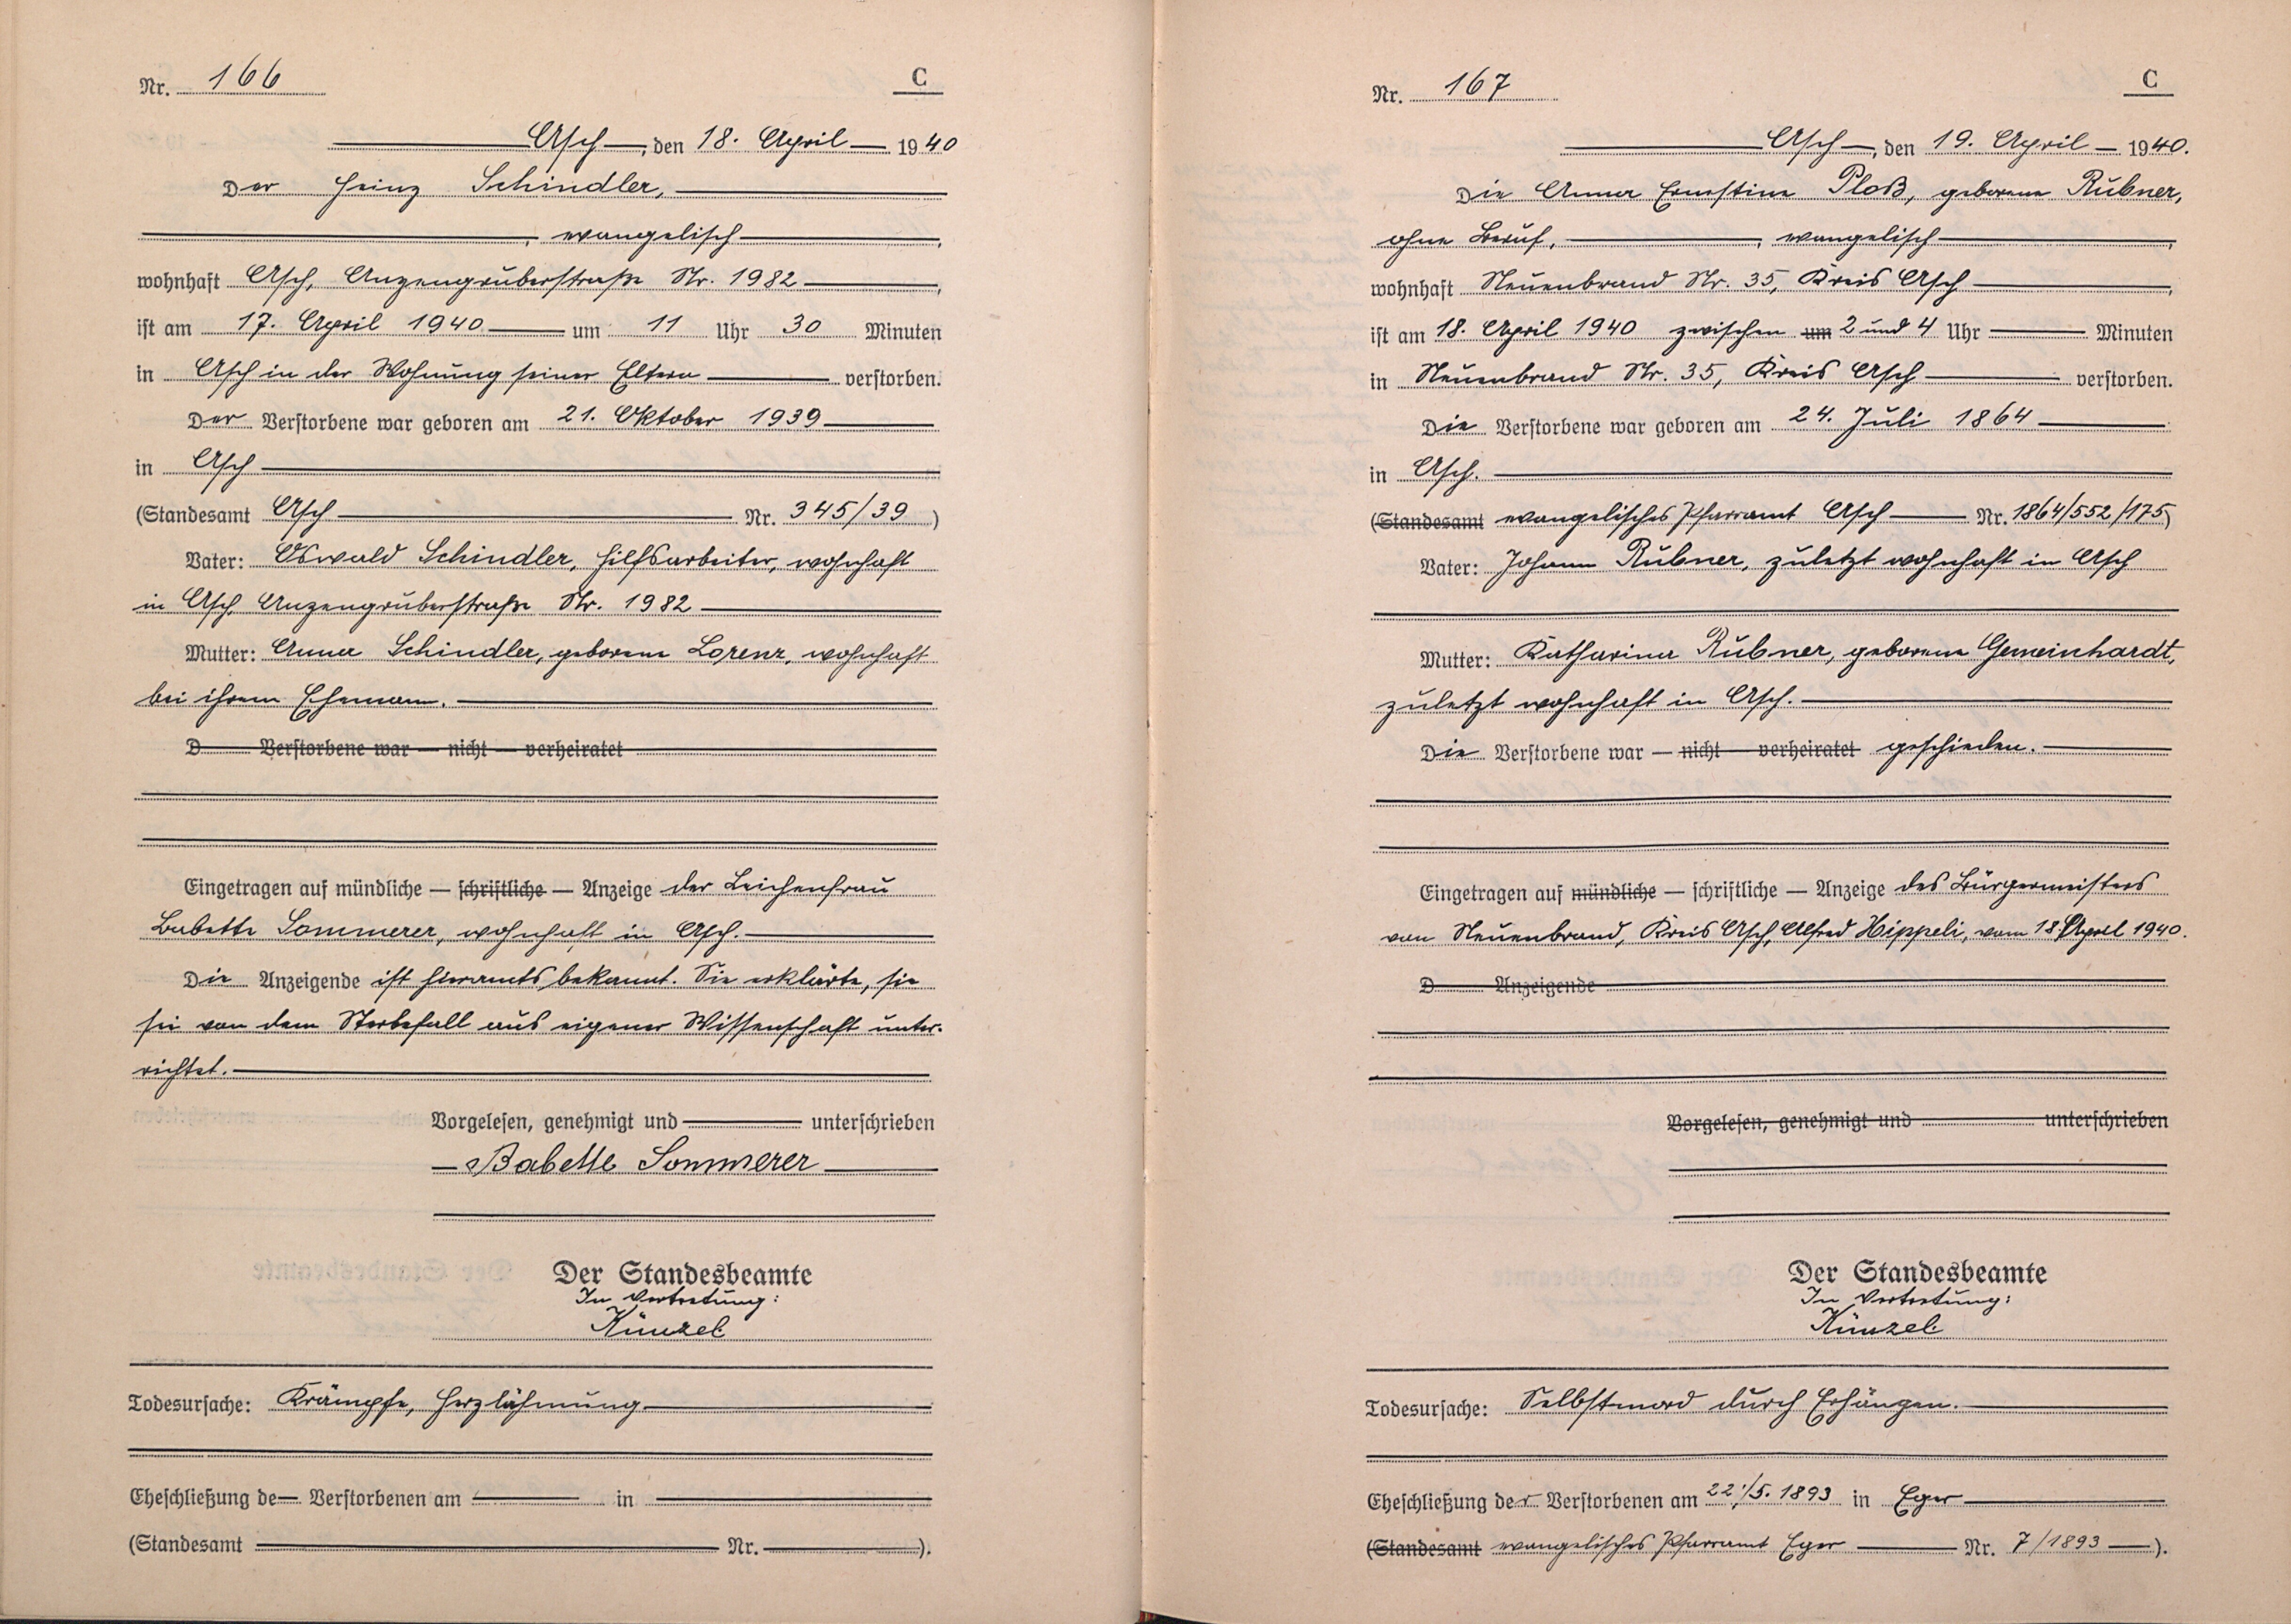 Nr. 166
C
Asch, den 18. April 1940
Der Heinz Schindler,
, evangelisch,
wohnhaft Asch, Anzengruberstraße Nr. 1982,
ist am 17. April 1940 um 11 Uhr 30 Minuten
in Asch in der Wohnung seiner Eltern verstorben.
Der Verstorbene war geboren am 21. Oktober 1939
in Asch
(Standesamt Asch Nr. 345/39)
Vater: Oswald Schindler, Hilfsarbeiter, wohnhaft
in Asch Anzengruberstraße Nr. 1982
Mutter: Anna Schindler, geborene Lorenz, wohnhaft
bei ihrem Ehemann.
D Verstorbene war — nicht — verheiratet
Eingetragen auf mündliche — schriftliche — Anzeige der Leichenfrau
Babette Sommerer, wohnhaft in Asch.
Die Anzeigende ist hieramts bekannt. Sie erklärte, sie
sei von dem Sterbefall aus eigener Wissenschaft unter-
richtet.
Vorgelesen, genehmigt und unterschrieben
Babette Sommerer
Der Standesbeamte
In Vertretung:
Künzel
Todesursache: Krämpfe, Herzlähmung
Eheschließung de Verstorbenen am in
(Standesamt Nr. ).
Nr. 167
C
Asch, den 19. April 1940.
Die Anna Ernestine Ploß, geborene Rubner,
ohne Beruf, , evangelisch,
wohnhaft Neuenbrand Nr. 35, Kreis Asch,
ist am 18. April 1940 zwischen um 2 und 4 Uhr Minuten
in Neuenbrand Nr. 35, Kreis Asch verstorben.
Die Verstorbene war geboren am 24. Juli 1864
in Asch.
(Standesamt evangelisches Pfarramt Asch Nr. 1864/552/175)
Vater: Johann Rubner, zuletzt wohnhaft in Asch
Mutter: Katharina Rubner, geborene Gemeinhardt,
zuletzt wohnhaft in Asch.
Die Verstorbene war — nicht verheiratet geschieden.
Eingetragen auf mündliche — schriftliche — Anzeige des Bürgermeisters
von Neuenbrand, Kreis Asch, Alfred Hippeli, vom 18. April 1940.
D Anzeigende
Vorgelesen, genehmigt und unterschrieben
Der Standesbeamte
In Vertretung:
Künzel
Todesursache: Selbstmord durch Erhängen.
Eheschließung der Verstorbenen am 22./5. 1893 in Eger
(Standesamt evangelisches Pfarramt Eger Nr. 7/1893).